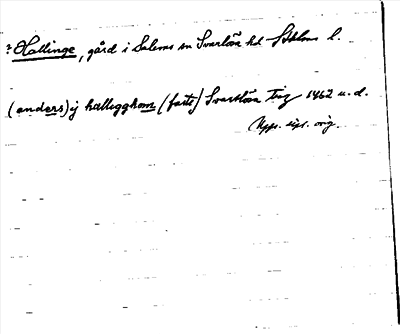 ? Hallinge, gård i Salems sn Svartlösa hd Sthlms l.
(anders) ij hallegghom (faste) Svartlösa Ting 1462 u.d.
Upps. eps. orig.